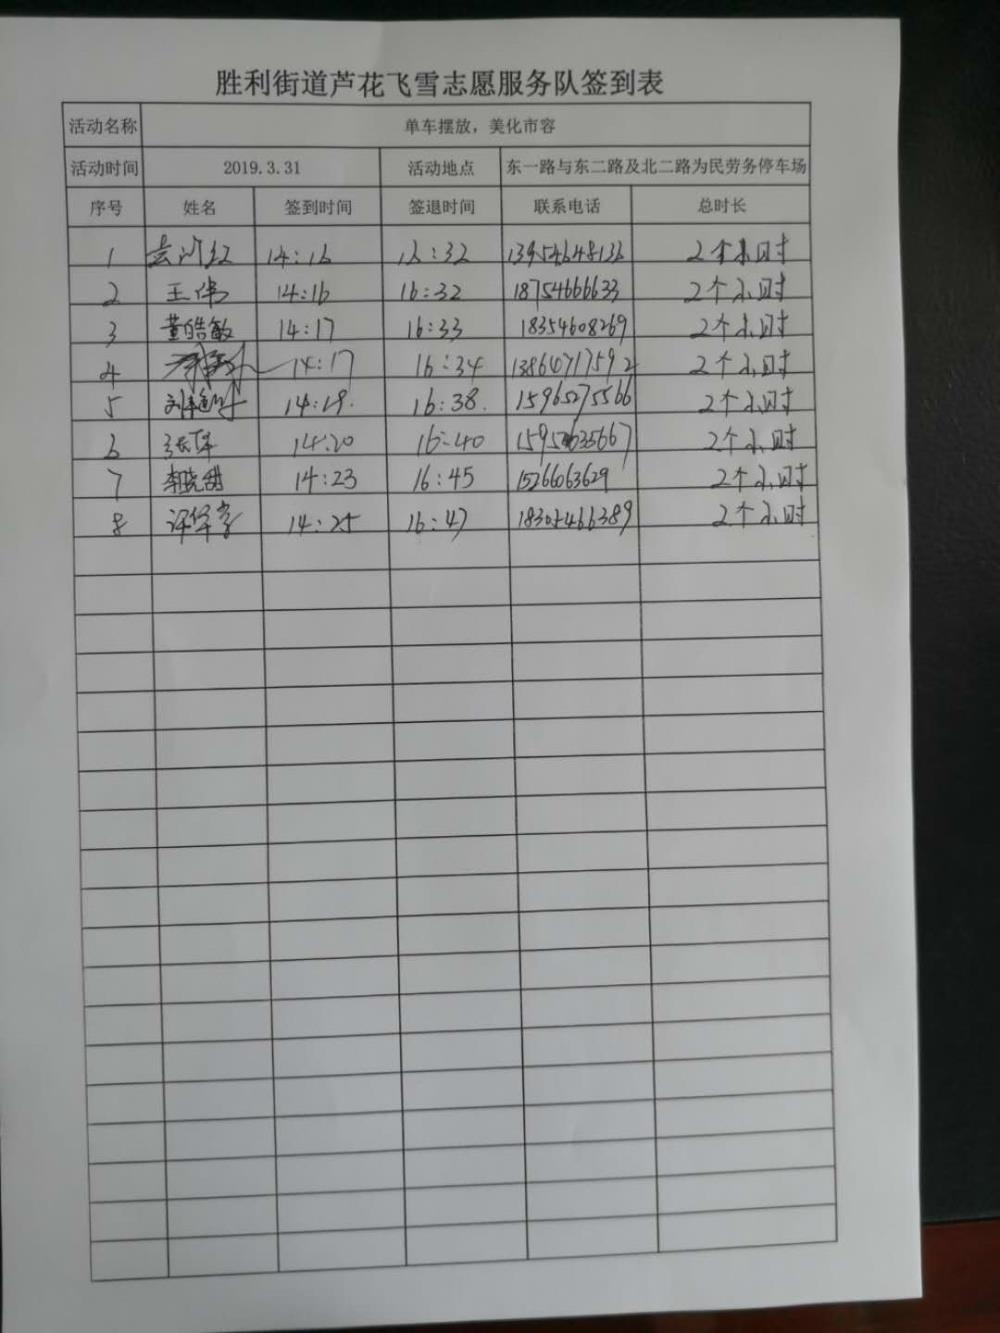 胜利街道芦花飞雪志愿服务队签到表
活动名称 单车摆放，美化市容
活动时间 2019.3.31 活动地点 东一路与东二路及北二路为民劳务停车场
序号 姓名 签到时间 签退时间 联系电话 总时长
1 14:16 16:32 13954648136 2个小时
2 王伟 14:16 16:32 18754666633 2个小时
3 董皓敏 14:17 16:33 18354608269 2个小时
4 14:17 16:34 13864717592 2个小时
5 14:19. 16:38. 15965275566 2个小时
6 张萍 14:20 16:40 2个小时
7 李晓甜 14:23 16:45 15266063629 2个小时
8 14:25 16:47 18305466389 2个小时